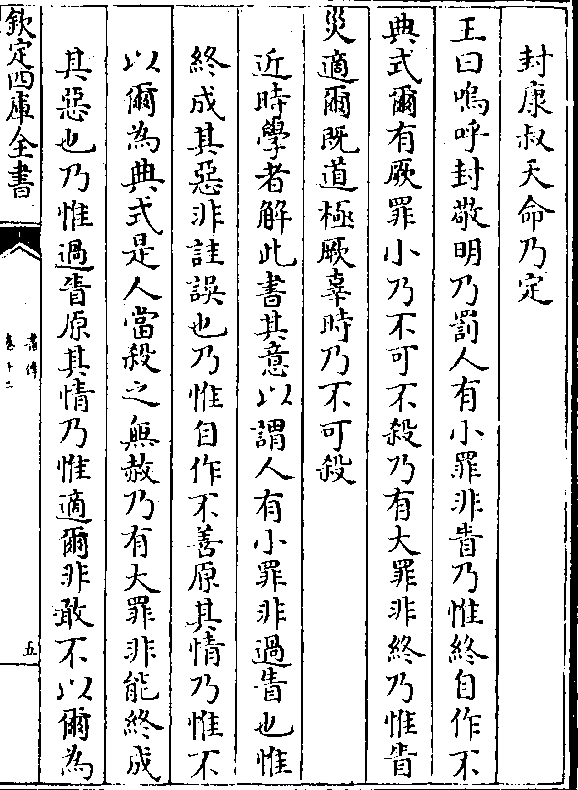 封康叔天命乃定
王曰嗚呼封敬明乃罰人有小罪非眚乃惟終自作不
典式爾有厥罪小乃不可不殺乃有大罪非終乃惟眚
災適爾既道極厥辜時乃不可殺
近時學者解此書其意以謂人有小罪非過眚也惟
終成其惡非詿誤也乃惟自作不善原其情乃惟不
以爾為典式是人當殺之無赦乃有大罪非能終成
其惡也乃惟過眚原其情乃惟適爾非敢不以爾為
欽定四庫全書
書傳
卷十二
五